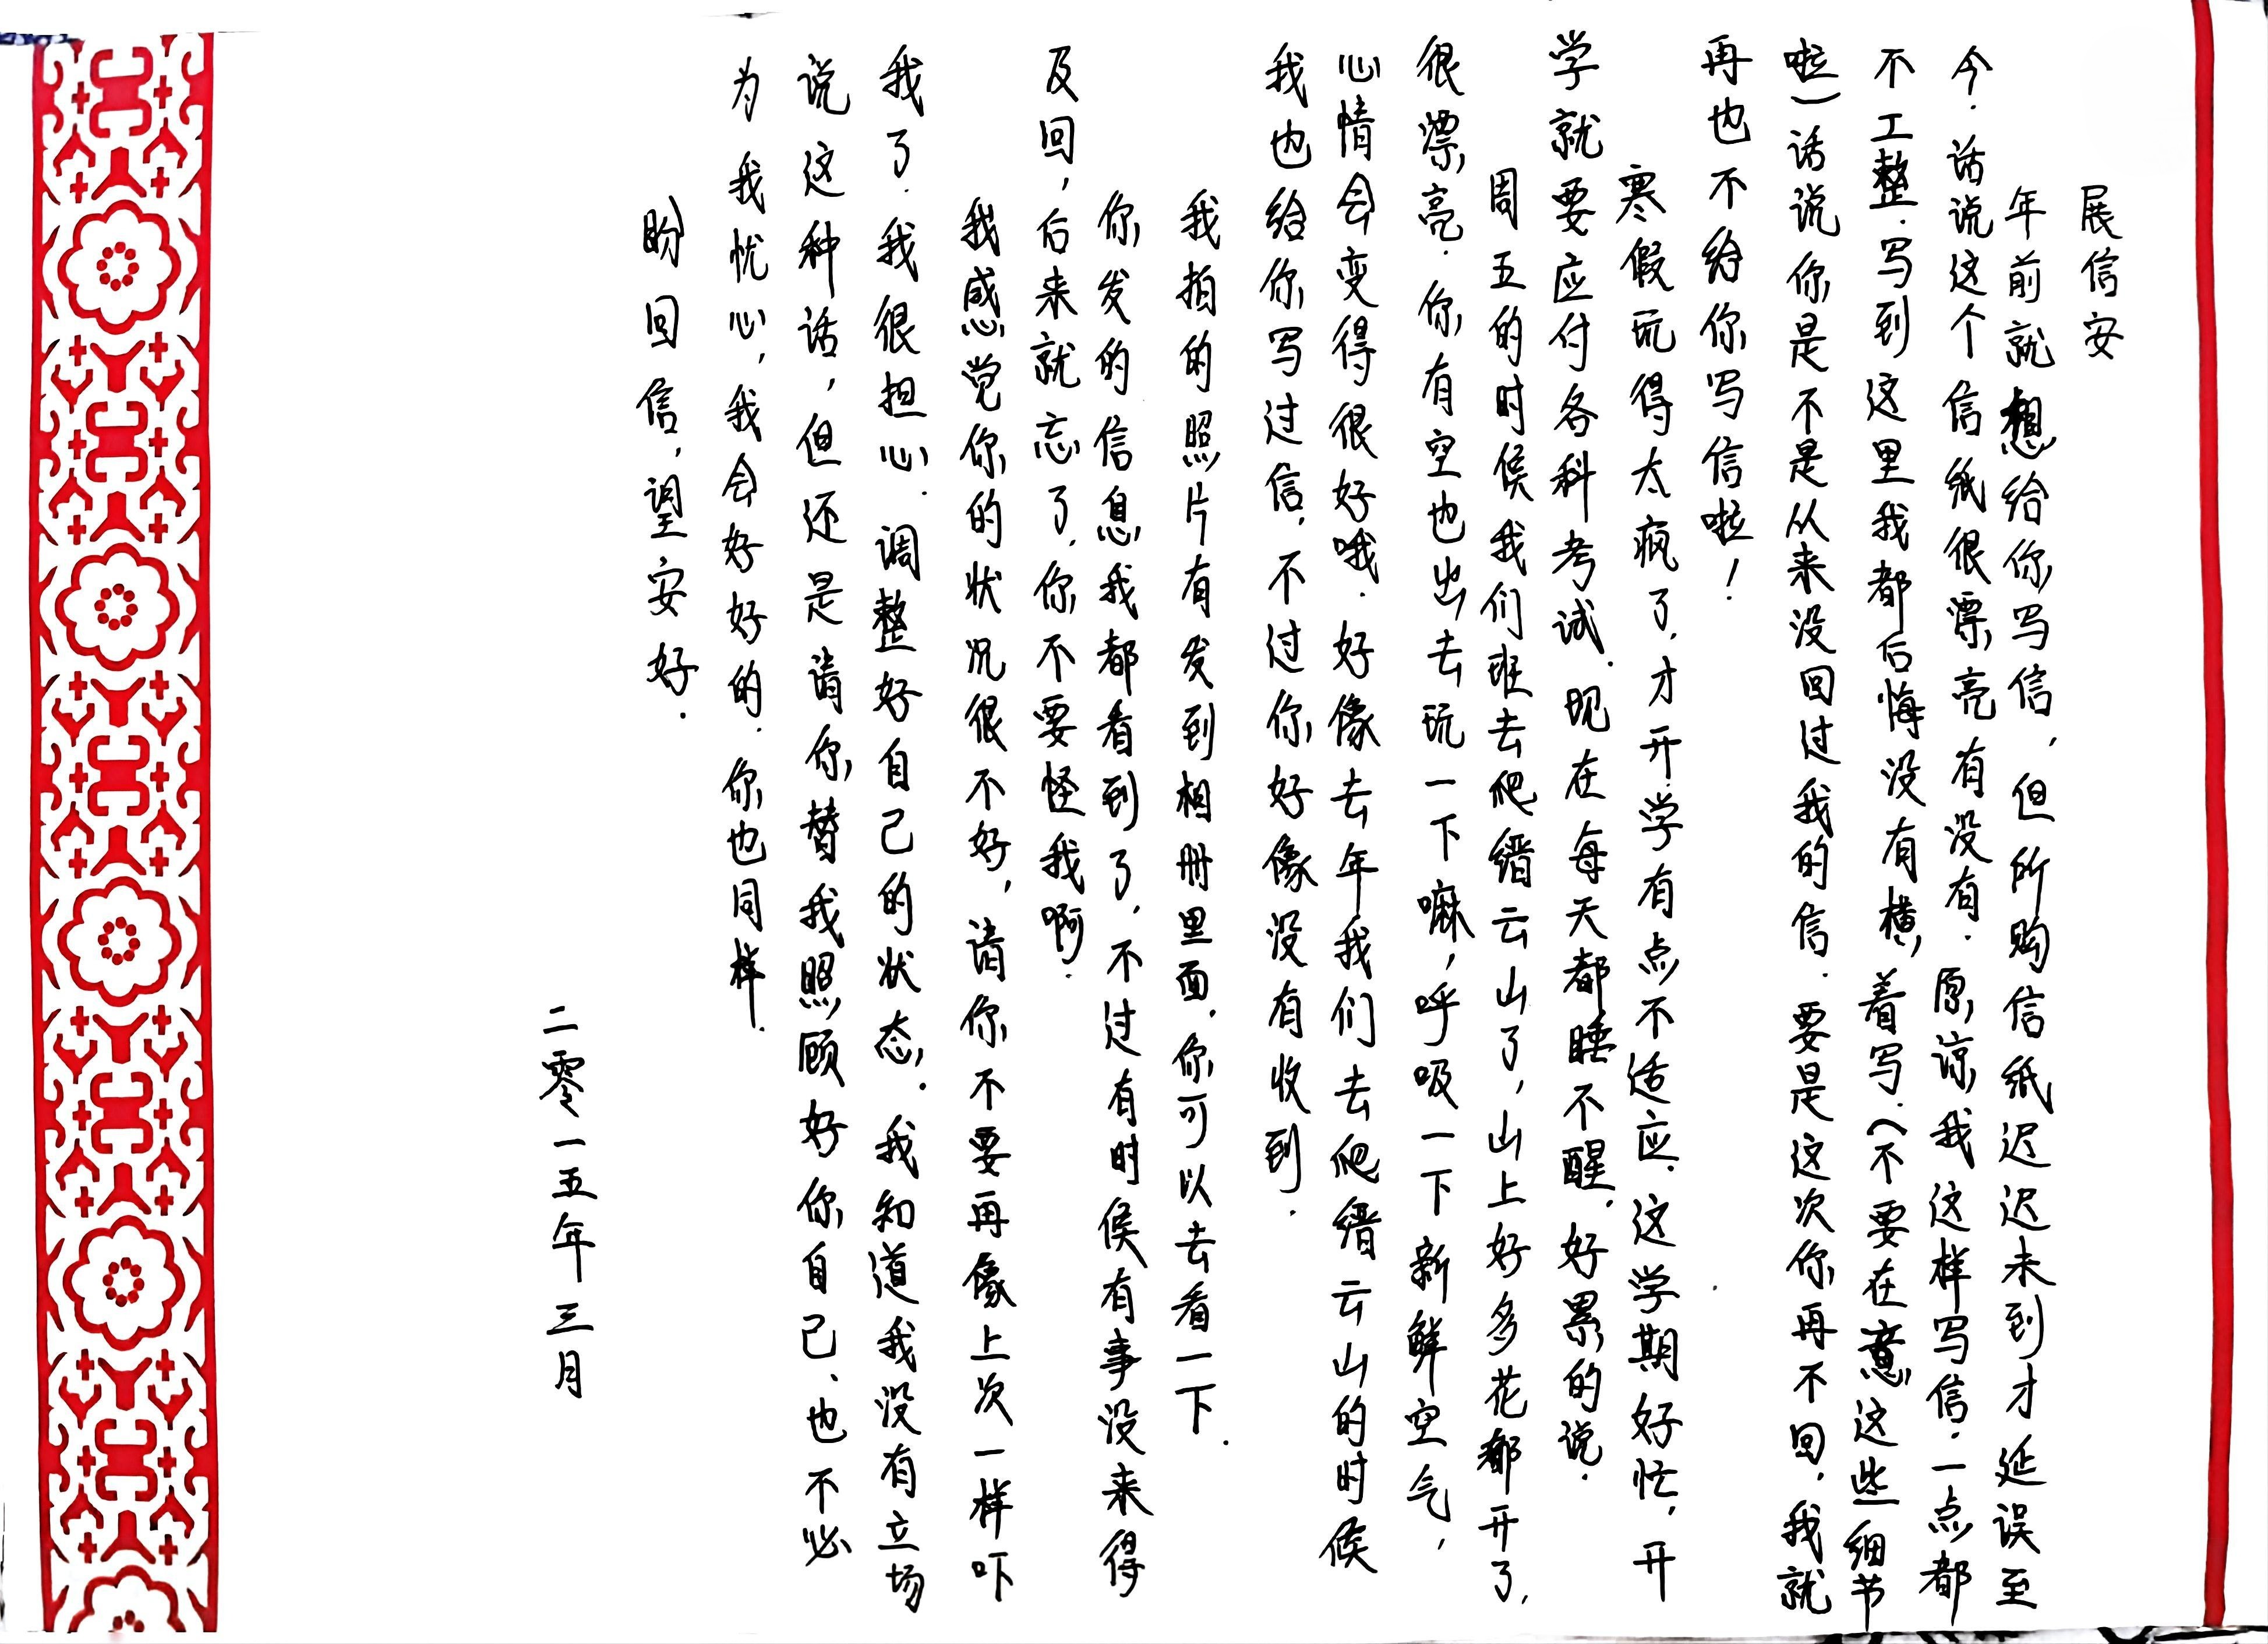 展信安
年前就想给你写信，但所购信纸迟迟未到才延误至
今．话说这个信纸很漂亮有没有．原谅我这样写信．一点都
不工整．写到这里我都后悔没有横着写．（不要在意这些细节
啦）话说你是不是从来没回过我的信．要是这次你再不回，我就
再也不给你写信啦！
寒假玩得太疯了．才开学有点不适应．这学期好忙，开
学就要应付各科考试．现在每天都睡不醒．好累的说．
周五的时候我们班去爬缙云山了，山上好多花都开了．
很漂亮．你有空也出去玩一下嘛，呼吸一下新鲜空气，
心情会变得很好哦．好像去年我们去爬缙云山的时候
我也给你写过信．不过你好像没有收到．
我拍的照片有发到相册里面．你可以去看一下．
你发的信息我都看到了．不过有时候有事没来得
及回，后来就忘了．你不要怪我啊．
我感觉你的状况很不好，请你不要再像上次一样吓
我了．我很担心．调整好自己的状态．我知道我没有立场
说这种话，但还是请你替我照顾好你自己、也不必
为我忧心，我会好好的．你也同样．
盼回信，望安好．
二零一五年三月